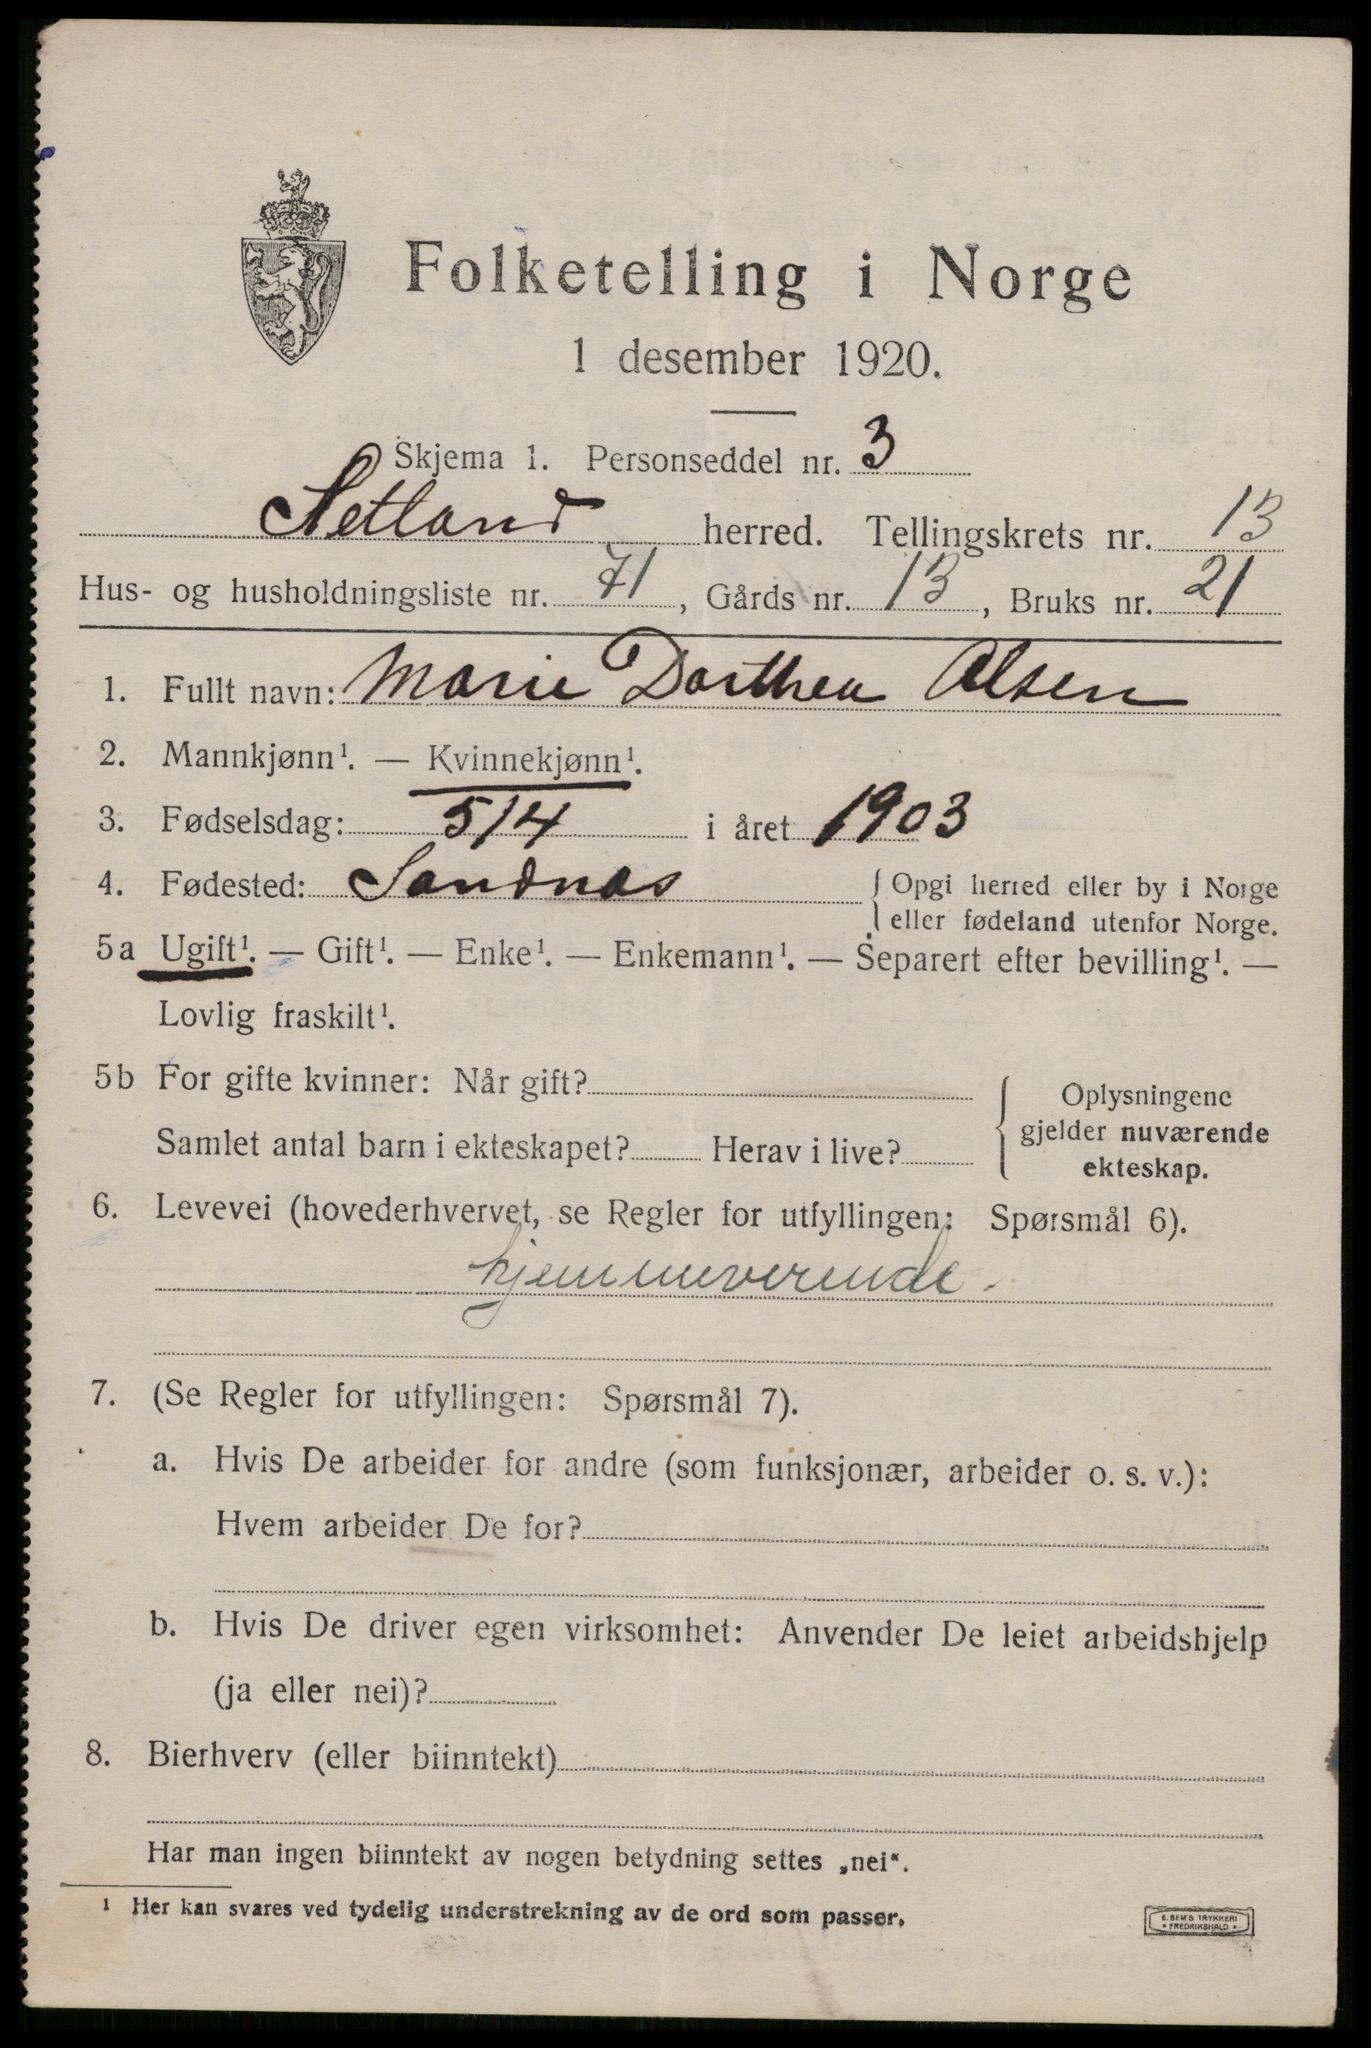 Folketelling i Norge
1 desember 1920.
Skjema 1. Personseddel nr. 3
Hetland herred. Tellingskrets nr. 13
Hus- og husholdningsliste nr. 71, Gårds nr. 13, Bruks nr. 21
1. Fullt navn: Marie Dorthea Olsen
2. Mannkjønn¹. — Kvinnekjønn¹.
3. Fødselsdag: 5/4 i året 1903
4. Fødested: Sandnæs { Opgi herred eller by i Norge
eller fødeland utenfor Norge.
5a Ugift¹. — Gift¹. — Enke¹. — Enkemann¹. — Separert efter bevilling¹. —
Lovlig fraskilt¹.
5b For gifte kvinner: Når gift?
Samlet antal barn i ekteskapet? Herav i live?
{ Oplysningene
gjelder nuværende
ekteskap.
6. Levevei (hovederhvervet, se Regler for utfyllingen: Spørsmål 6).
hjemmeverende.
7. (Se Regler for utfyllingen: Spørsmål 7).
a. Hvis De arbeider for andre (som funksjonær, arbeider o. s. v.):
Hvem arbeider De for?
b. Hvis De driver egen virksomhet: Anvender De leiet arbeidshjelp
(ja eller nei)?
8. Bierhverv (eller biinntekt)
Har man ingen biinntekt av nogen betydning settes „nei“.
¹ Her kan svares ved tydelig understrekning av de ord som passer.
E. SEM'S TRYKKERI
* FREDRIKSHALD *